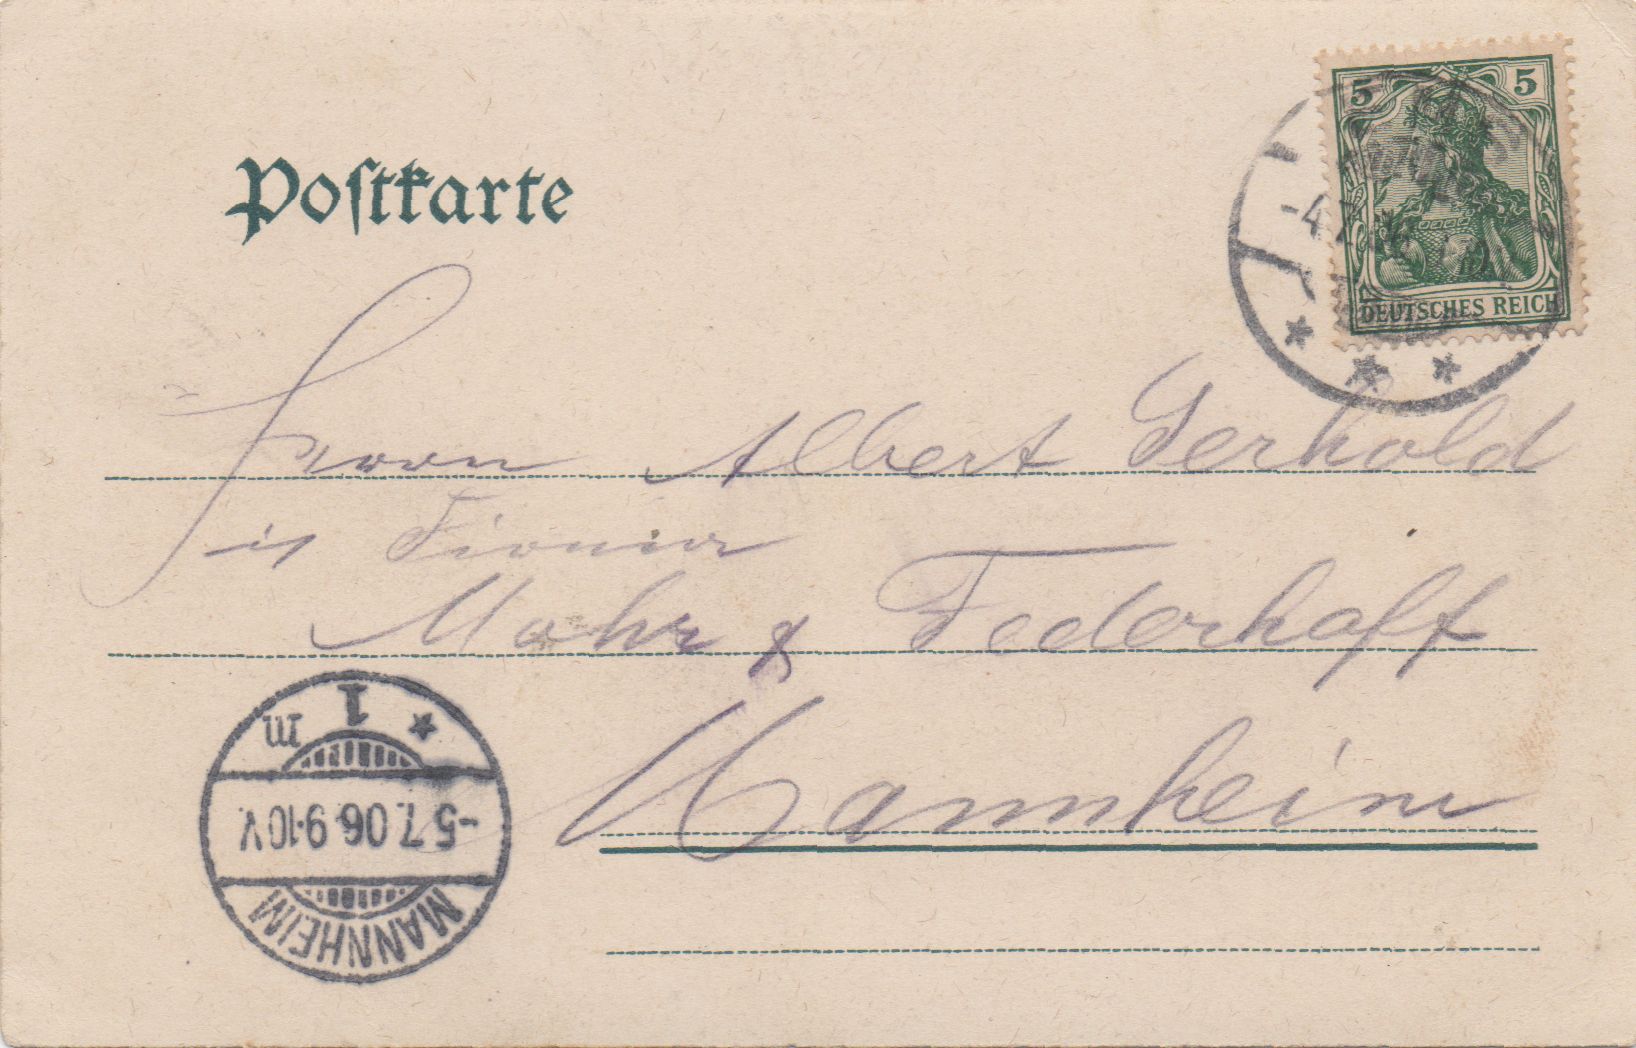 Postkarte
5 5
DEUTSCHES REICH
-4.7.
Herrn Albert Gerhold
in Firma
Mohr & Federhaff
Mannheim
MANNHEIM
-5.7.06.9-10V.
1
m